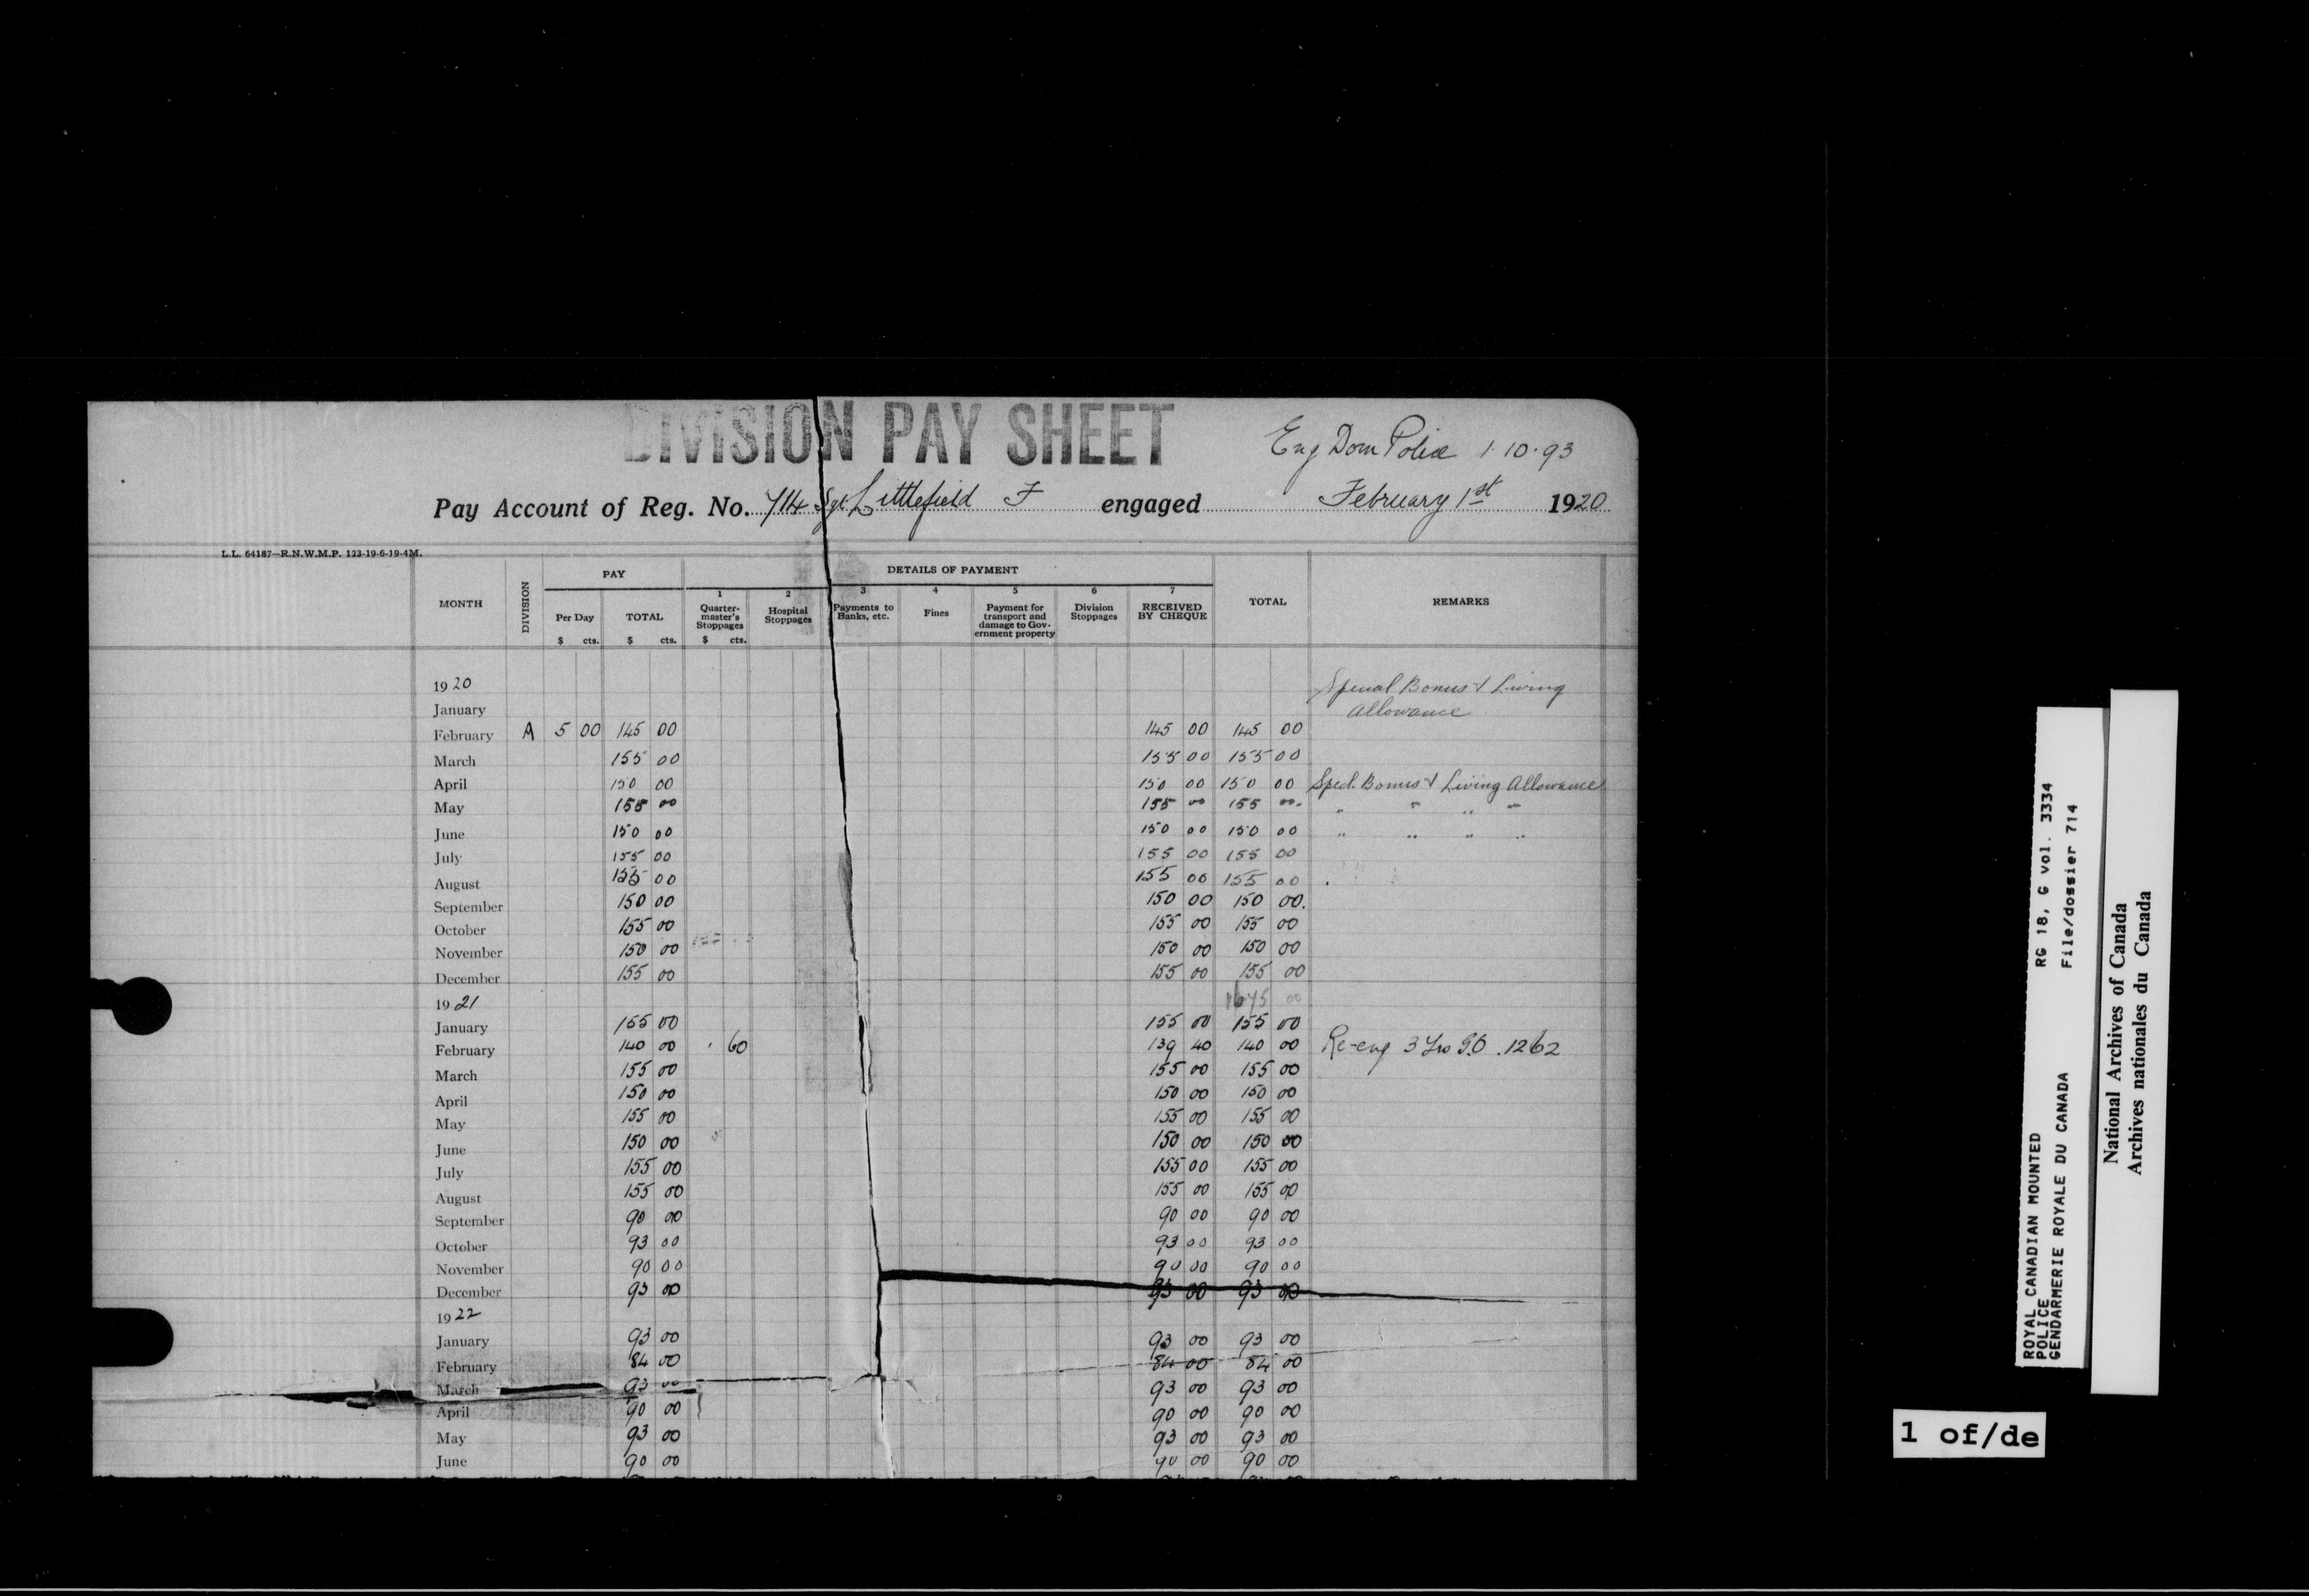 DIVISION PAY SHEET
Eng Dom Police 1.10.93
Pay Account of Reg. No. 714 Sgt Littlefield F engaged February 1st 1920
L.L. 64187—R.N.W.M.P. 123-19-6-19-4M.
MONTH DIVISION PAY DETAILS OF PAYMENT TOTAL REMARKS
Per Day TOTAL 1 Quarter-master's Stoppages 2 Hospital Stoppages 3 Payments to Banks, etc. 4 Fines 5 Payment for transport and damage to Government property 6 Division Stoppages 7 RECEIVED BY CHEQUE
$ cts. $ cts. $ cts.
1920 Special Bonus & Living
January Allowance
February A 5 00 145 00 145 00 145 00
March 155 00 155 00 155 00
April 150 00 150 00 150 00 Specl. Bonus & Living Allowance
May 155 00 155 00 155 00 " " " "
June 150 00 150 00 150 00 " " " "
July 155 00 155 00 155 00
August 155 00 155 00 155 00
September 150 00 150 00 150 00.
October 155 00 155 00 155 00
November 150 00 150 00 150 00
December 155 00 155 00 155 00
1921 1675 00
January 155 00 155 00 155 00
February 140 00 . 60 139 40 140 00 Re-eng 3 Yrs G.O. 1262
March 155 00 155 00 155 00
April 150 00 150 00 150 00
May 155 00 155 00 155 00
June 150 00 150 00 150 00
July 155 00 155 00 155 00
August 155 00 155 00 155 00
September 90 00 90 00 90 00
October 93 00 93 00 93 00
November 90 00 90 00 90 00
December 93 00 93 00 93 00
1922
January 93 00 93 00 93 00
February 84 00 84 00 84 00
March 93 00 93 00 93 00
April 90 00 90 00 90 00
May 93 00 93 00 93 00
June 90 00 90 00 90 00
ROYAL CANADIAN MOUNTED RG 18, G vol. 3334
POLICE
GENDARMERIE ROYALE DU CANADA File/dossier 714
National Archives of Canada
Archives nationales du Canada
1 of/de